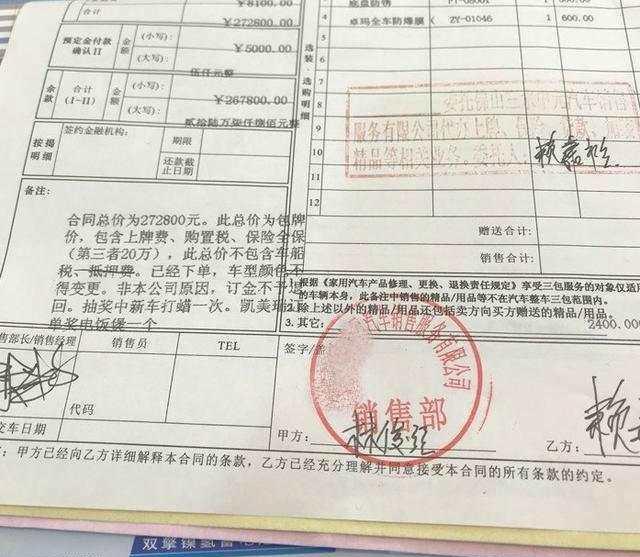 ¥8100.00
底盘防锈
600.00
合计
¥272800.00
卓玛全车防爆膜 ( ZY-01046 1 600.00
预定金付款
确认II
金额
(小写):
¥5000.00
(大写):
伍仟元整
余款
(I-II)
合计
金额
(小写):
¥267800.00
(大写):
贰拾陆万柒仟捌佰元整
选装
选购明细
7
8
9
10
11
12
服务有限公司代办上牌、保险
精品等相关业务,委托人:
按揭
明细
签约金融机构:
期限
还款截止日期
备注:
合同总价为272800元。此总价为包牌
价,包含上牌费、购置税、保险全保
(第三者20万),此总价不包含车船
税、抵押费。已经下单,车型颜色不
得变更。非本公司原因,订金不予退
回。抽奖中新车打蜡一次。凯美瑞
单奖电饭煲一个
赠送合计:
销售合计:
根据《家用汽车产品修理、更换、退换责任规定》享受三包服务的对象仅适用
的车辆本身,此备注中销售的精品/用品等不在汽车整车三包范围内。
2.除上述以外的精品/用品还包括卖方向买方赠送的精品/用品。
3.其它:
2400.00
售部长/销售经理
销售员
TEL
签字/盖
代码
交车日期
汽车销售服务有限公司
销售部
甲方:
乙方:
:甲方已经向乙方详细解释本合同的条款,乙方已经充分理解并同意接受本合同的所有条款的约定。
双擎